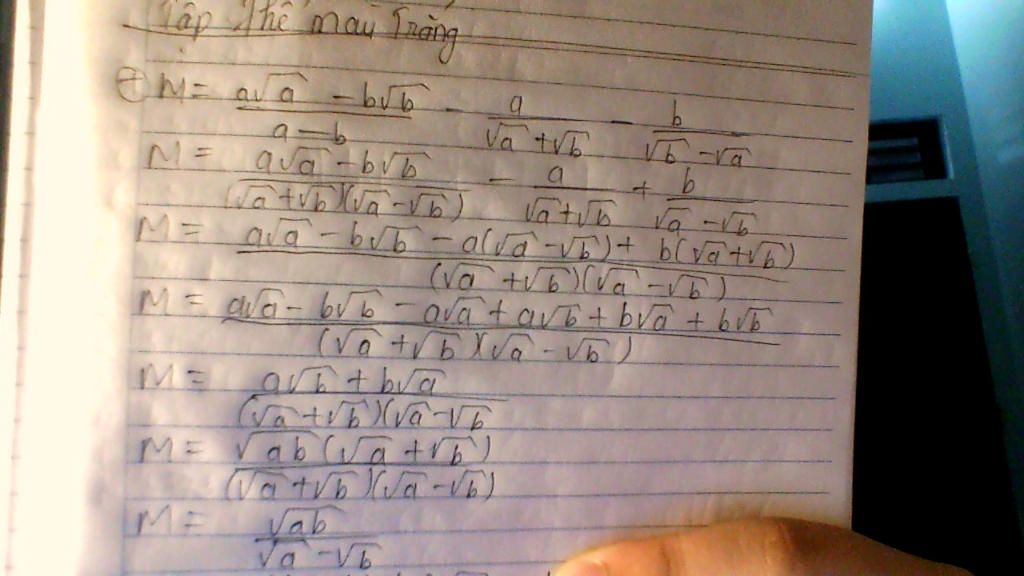 Tập thể màu Trắng
+ M = a√a - b√b / a - b - a / √a + √b - b / √b - √a
M = a√a - b√b / (√a + √b)(√a - √b) - a / √a + √b + b / √a - √b
M = a√a - b√b - a(√a - √b) + b(√a + √b) / (√a + √b)(√a - √b)
M = a√a - b√b - a√a + a√b + b√a + b√b / (√a + √b)(√a - √b)
M = a√b + b√a / (√a + √b)(√a - √b
M = √ab (√a + √b) / (√a + √b)(√a - √b)
M = √ab / √a - √b